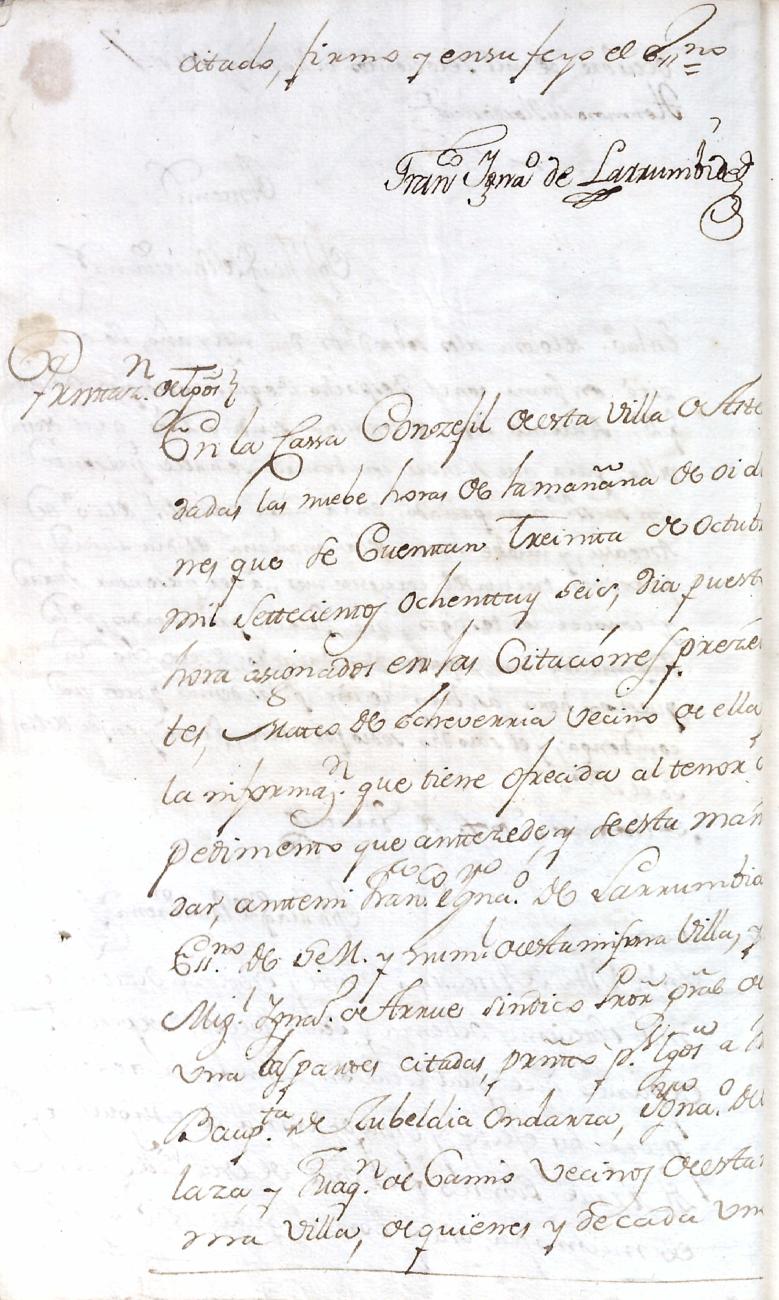 citado, firmo y en su fe yo el Ess.no
Fran.co Igna.o de Larrumbide
Presentaz.n de Tgos
En la Cassa Conzejil de esta Villa de
dadas las nuebe horas de la mañana de oi
nes que se Cuenttan Treintta de Octub
mil Settecientos ochentta y seis, dia puest
hora asignados en las Citaciónes preze
tes, Mateo de Echeverria vecino de ella
la informaz.n que tiene ofrecida al tenor
pedimento que anttezede, y de esta man
dar, antte mi Fran.co Igna.o de Larrumbid
Ess.no de S.M. y num.l de esta misma Villa, y
Mig.l Igna.o de Arrue sindico Pror gral de
una las partes citadas, presentto p.r Tgos a
Baup.ta de Zubeldia Ondarza, Igna.o de
laza, y Juaq.n de Gamio Vecinos de esta
ma Villa, de quienes y de cada un